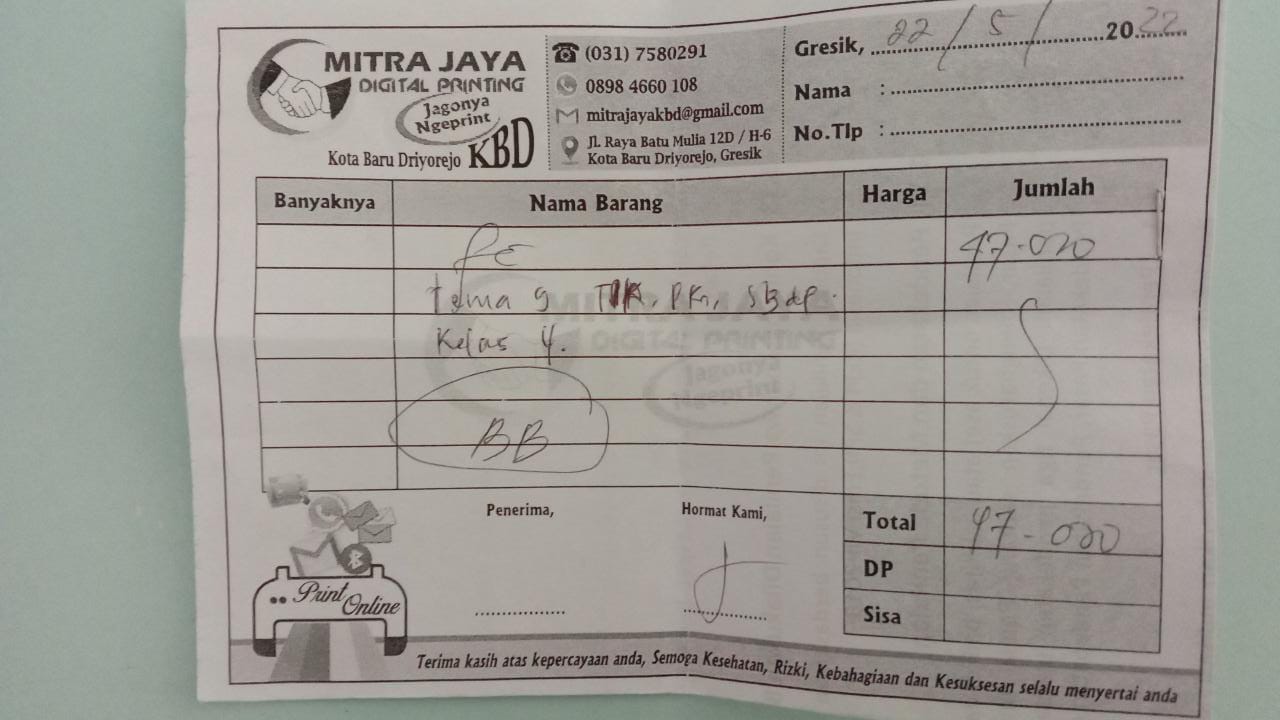 MITRA JAYA
DIGITAL PRINTING
Jagonya
Ngeprint
Kota Baru Driyorejo KBD
(031) 7580291
0898 4660 108
mitrajayakbd@gmail.com
Jl. Raya Batu Mulia 12D / H-6
Kota Baru Driyorejo, Gresik
Gresik, 22 / 5 / 2022
Nama :
No.Tlp :
Banyaknya Nama Barang Harga Jumlah
47.000
tema 9 PKn, SBdp.
Kelas 4.
BB
MITRA JAYA
DIGITAL PRINTING
Jagonya
Ngeprint
Penerima, Hormat Kami,
Total 47.000
DP
Sisa
Print
Online
Terima kasih atas kepercayaan anda, Semoga Kesehatan, Rizki, Kebahagiaan dan Kesuksesan selalu menyertai anda